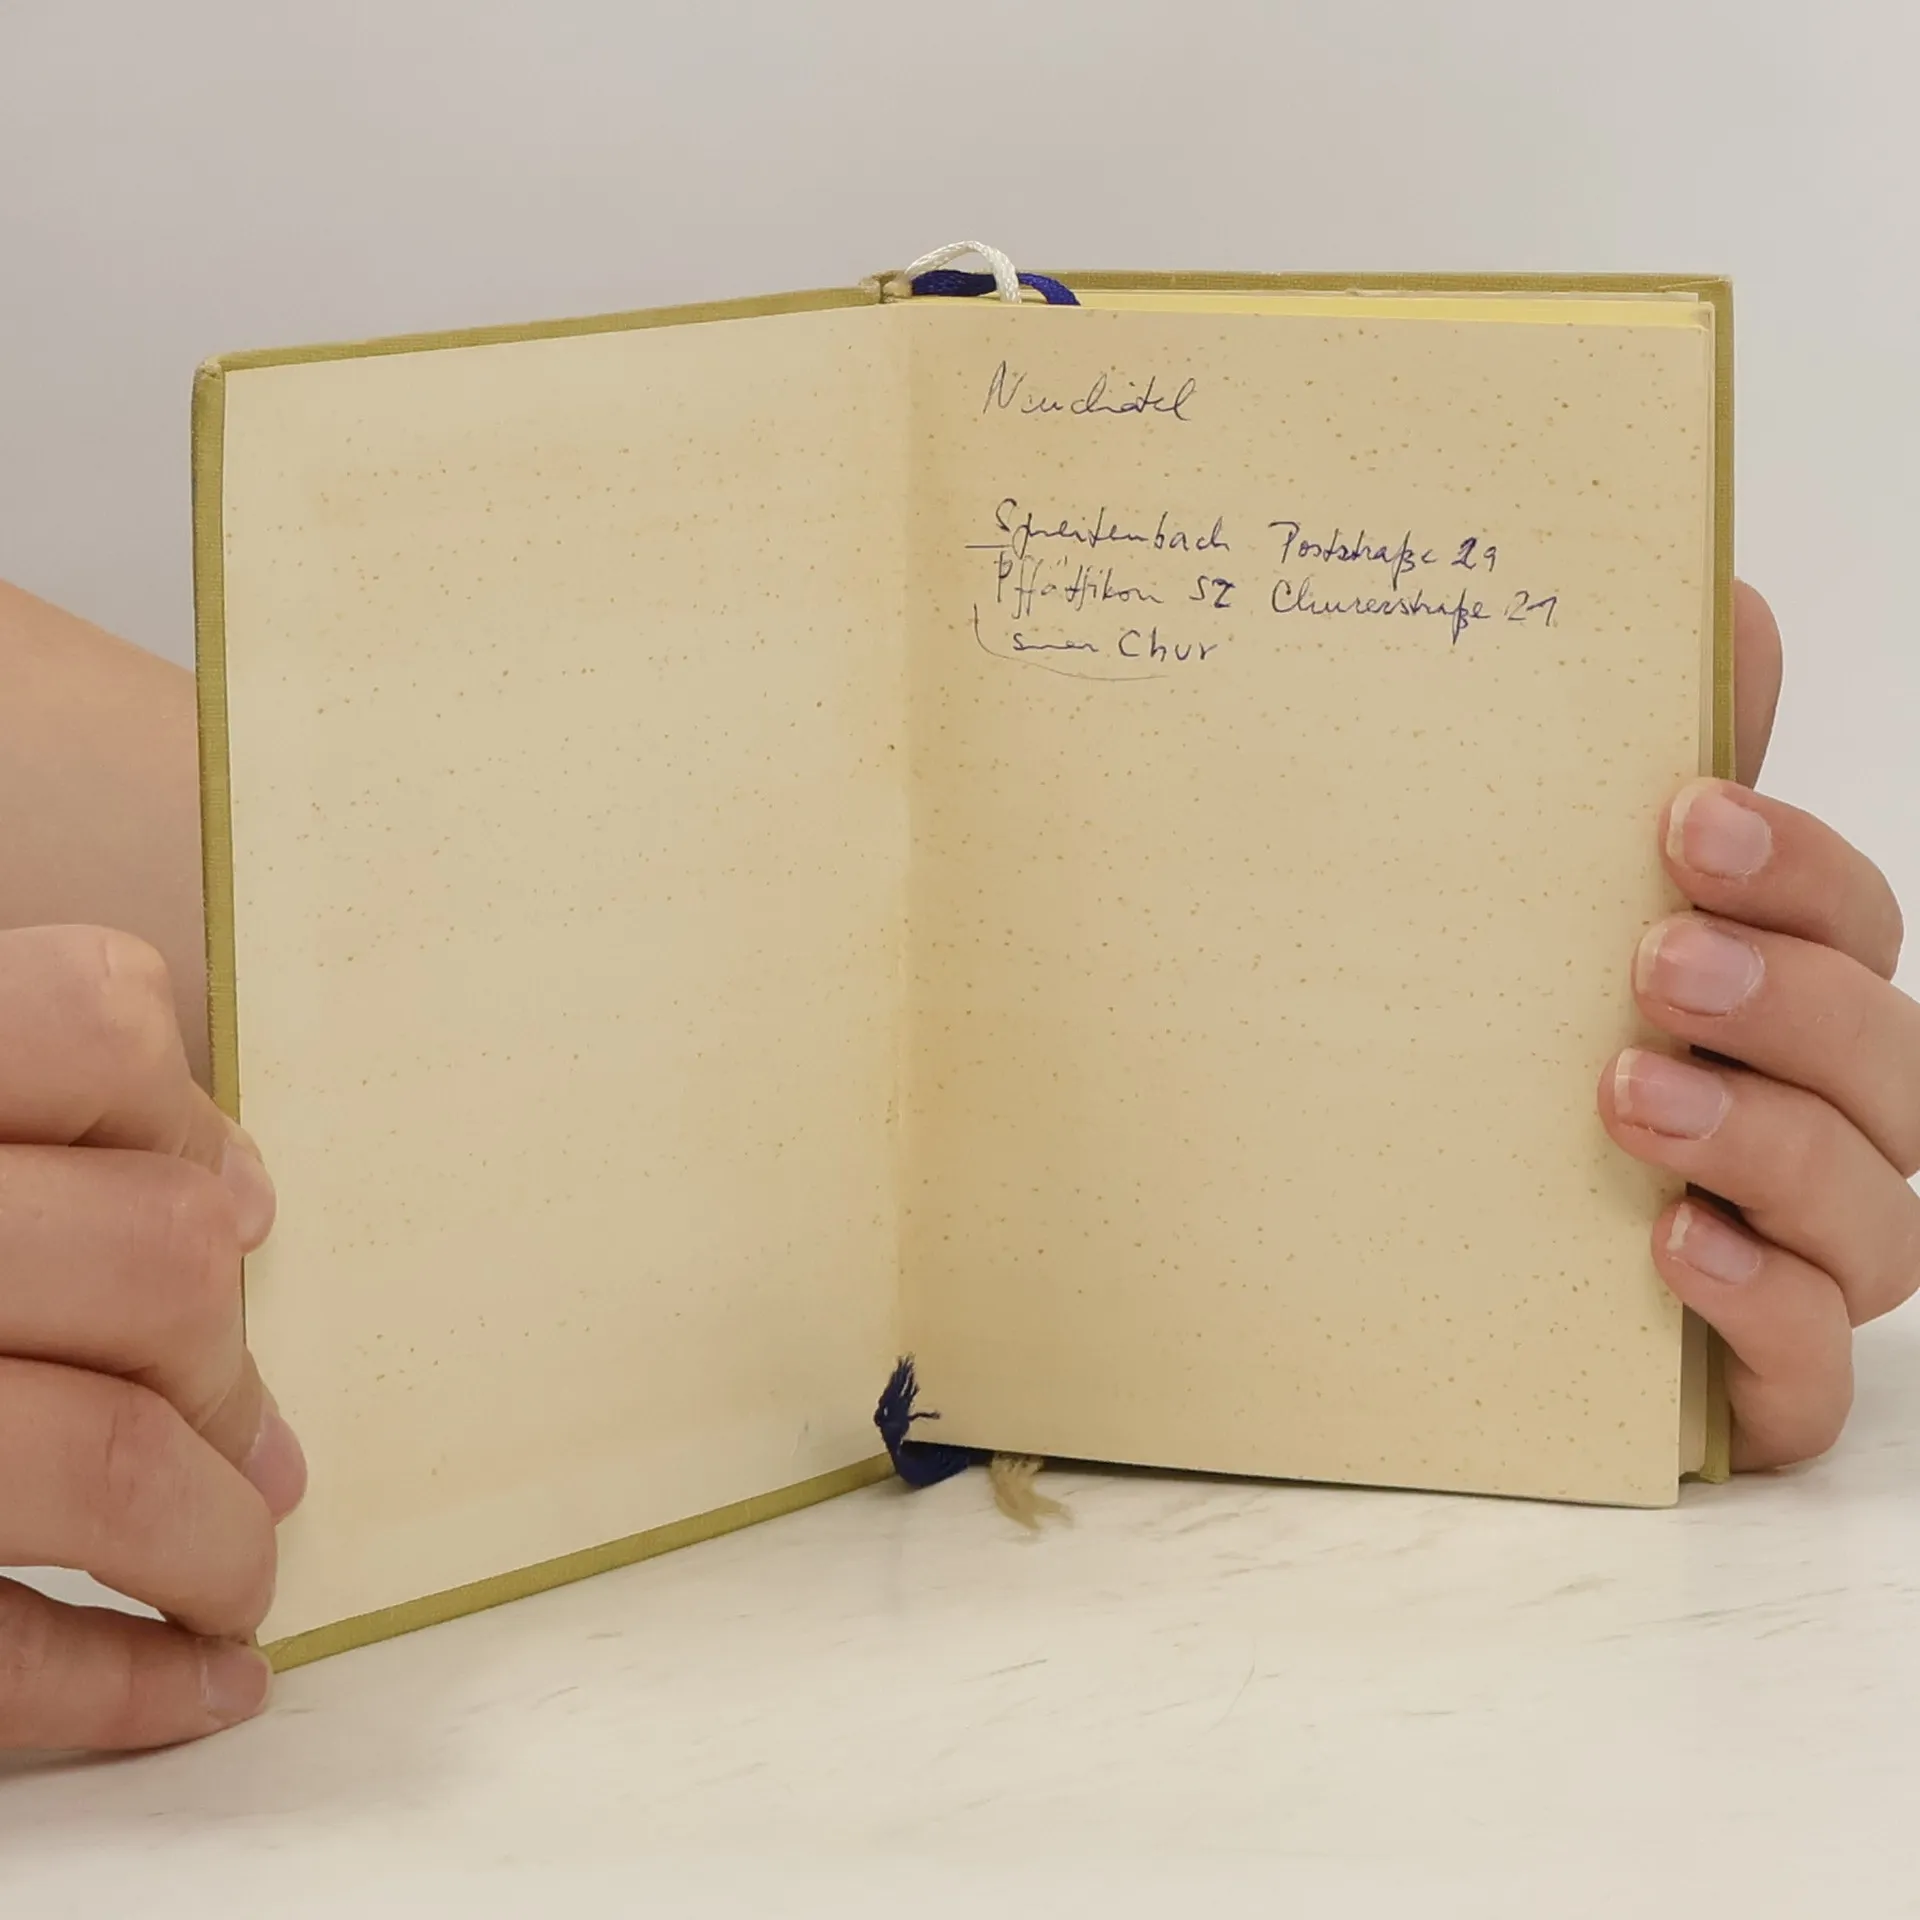 Neuchâtel
Spreitenbach Poststraße 29
Pfäffikon SZ Churerstraße 21
Chur